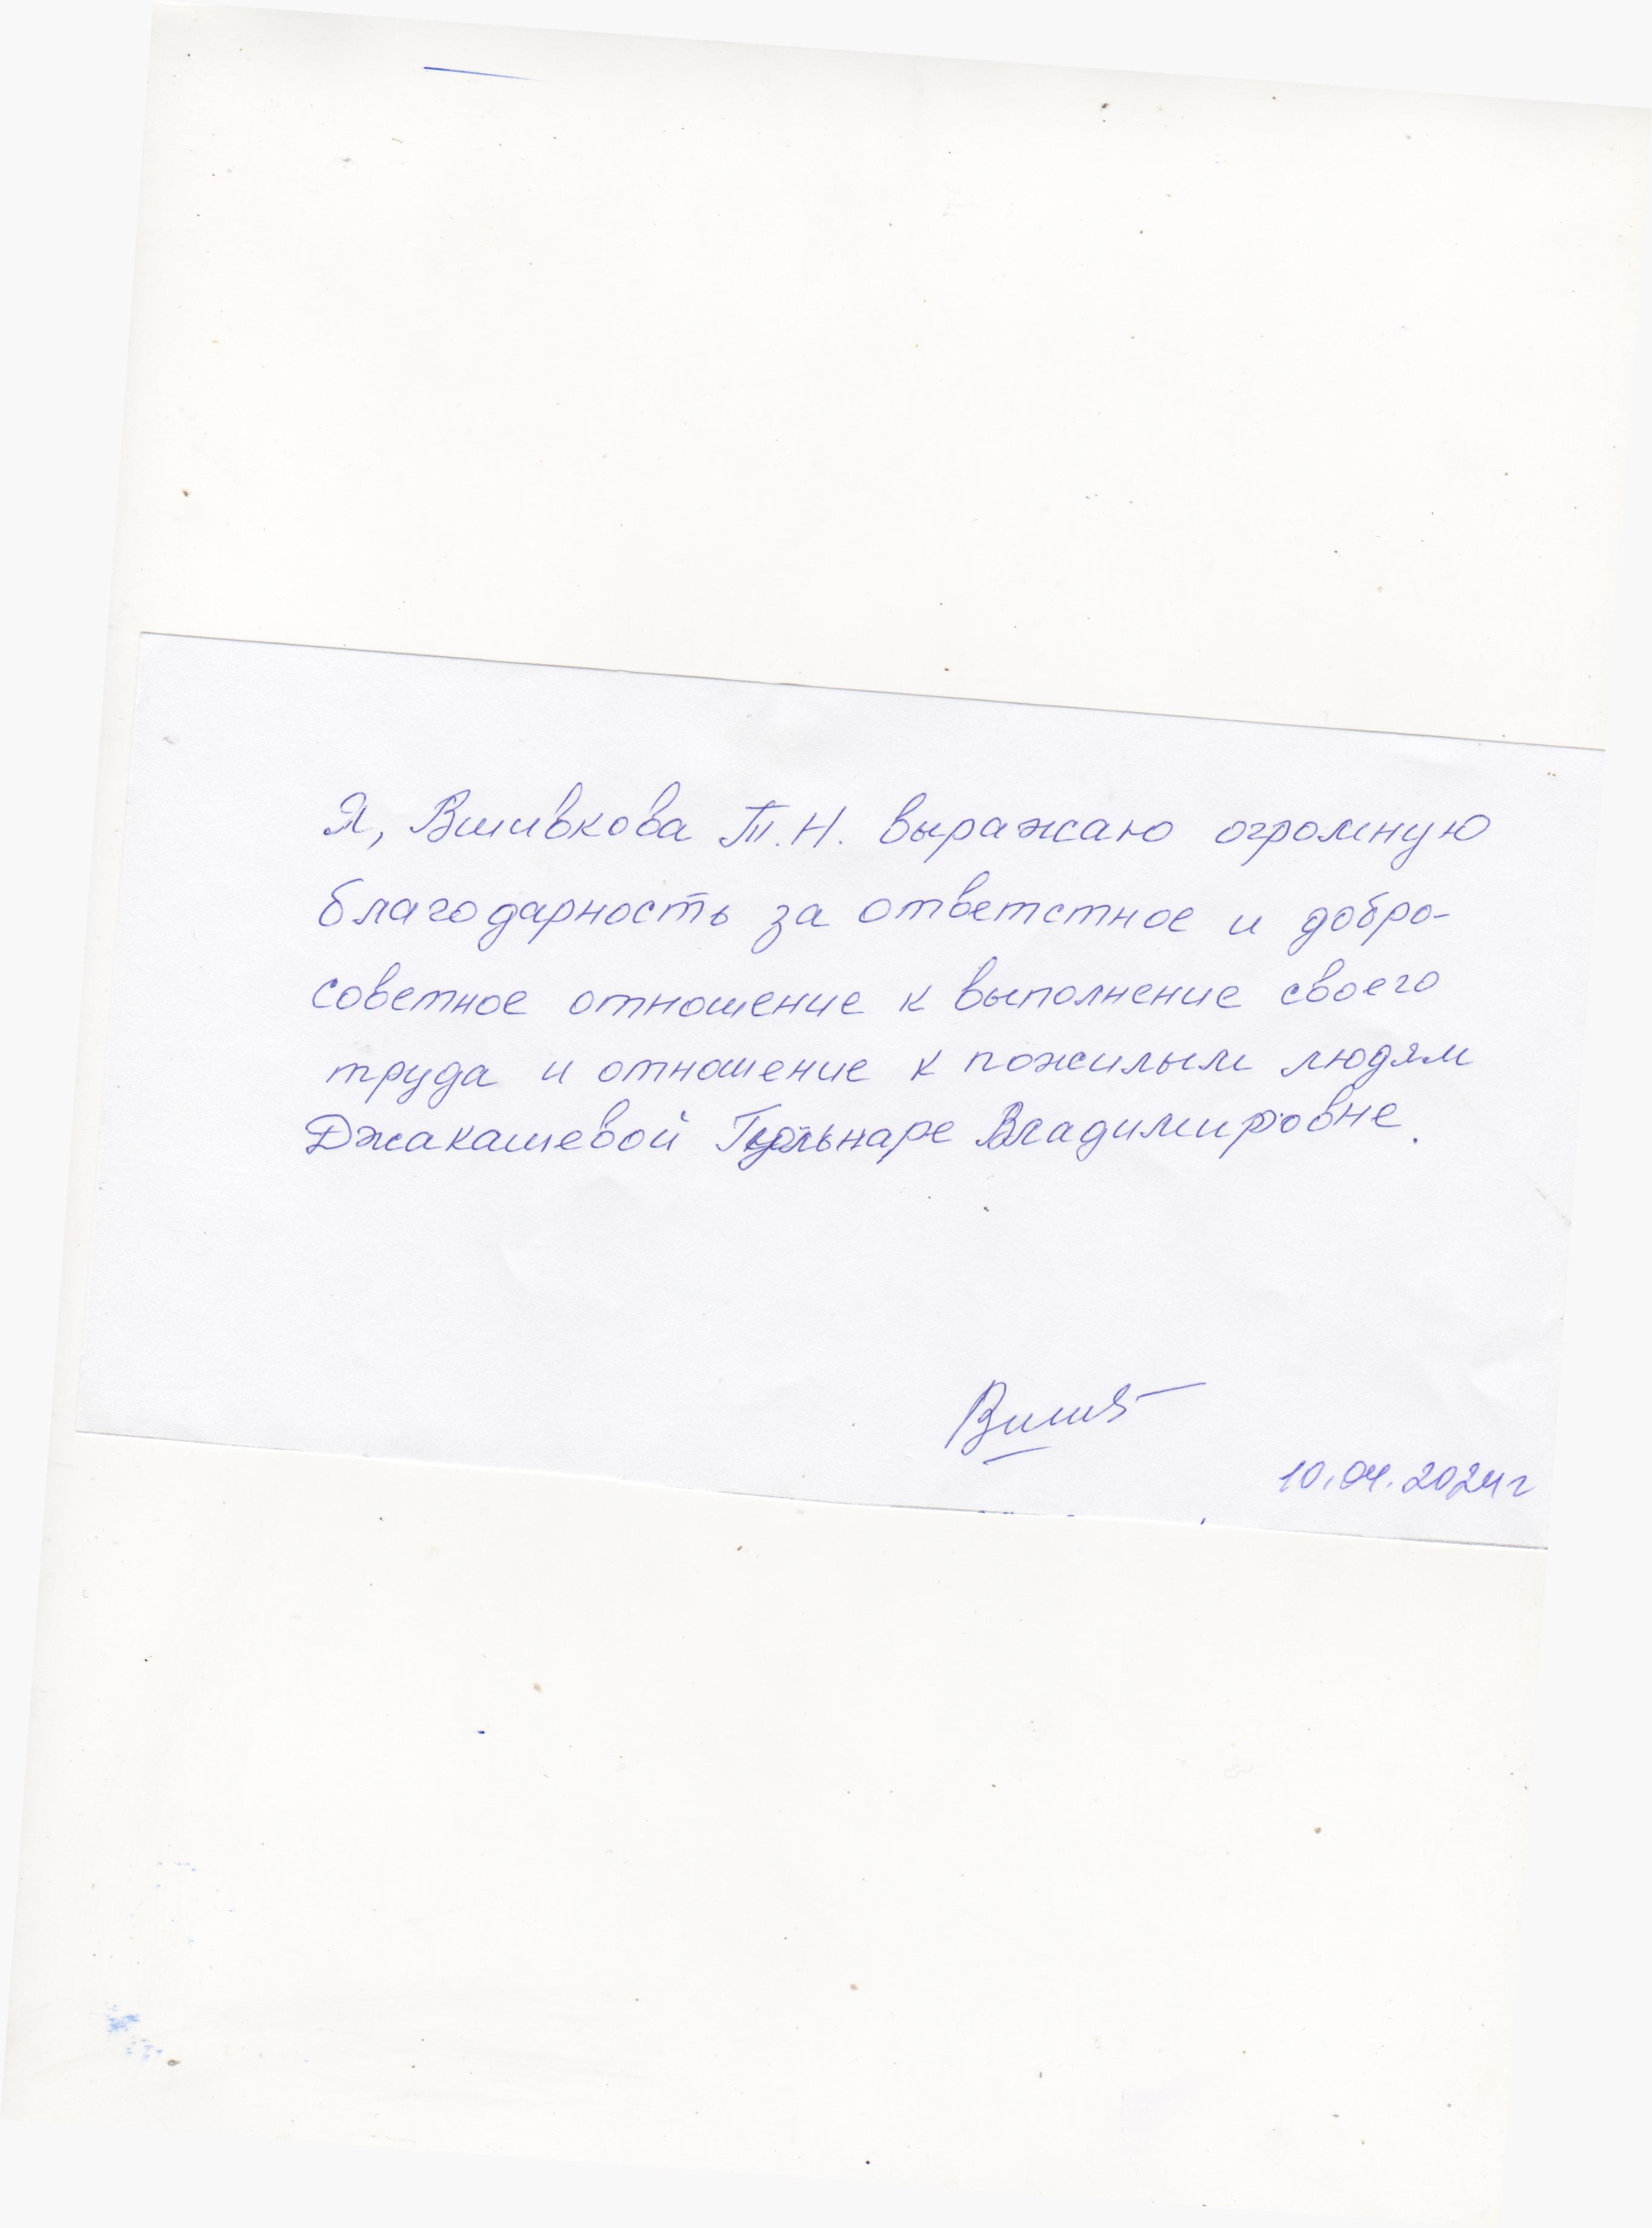 Я, Вшивкова Т.Н. выражаю огромную
благодарность за ответстное и добро-
советное отношение к выполнение своего
труда и отношение к пожилым людям
Джакашевой Гульнаре Владимировне.
Вшив
10.04.2024г